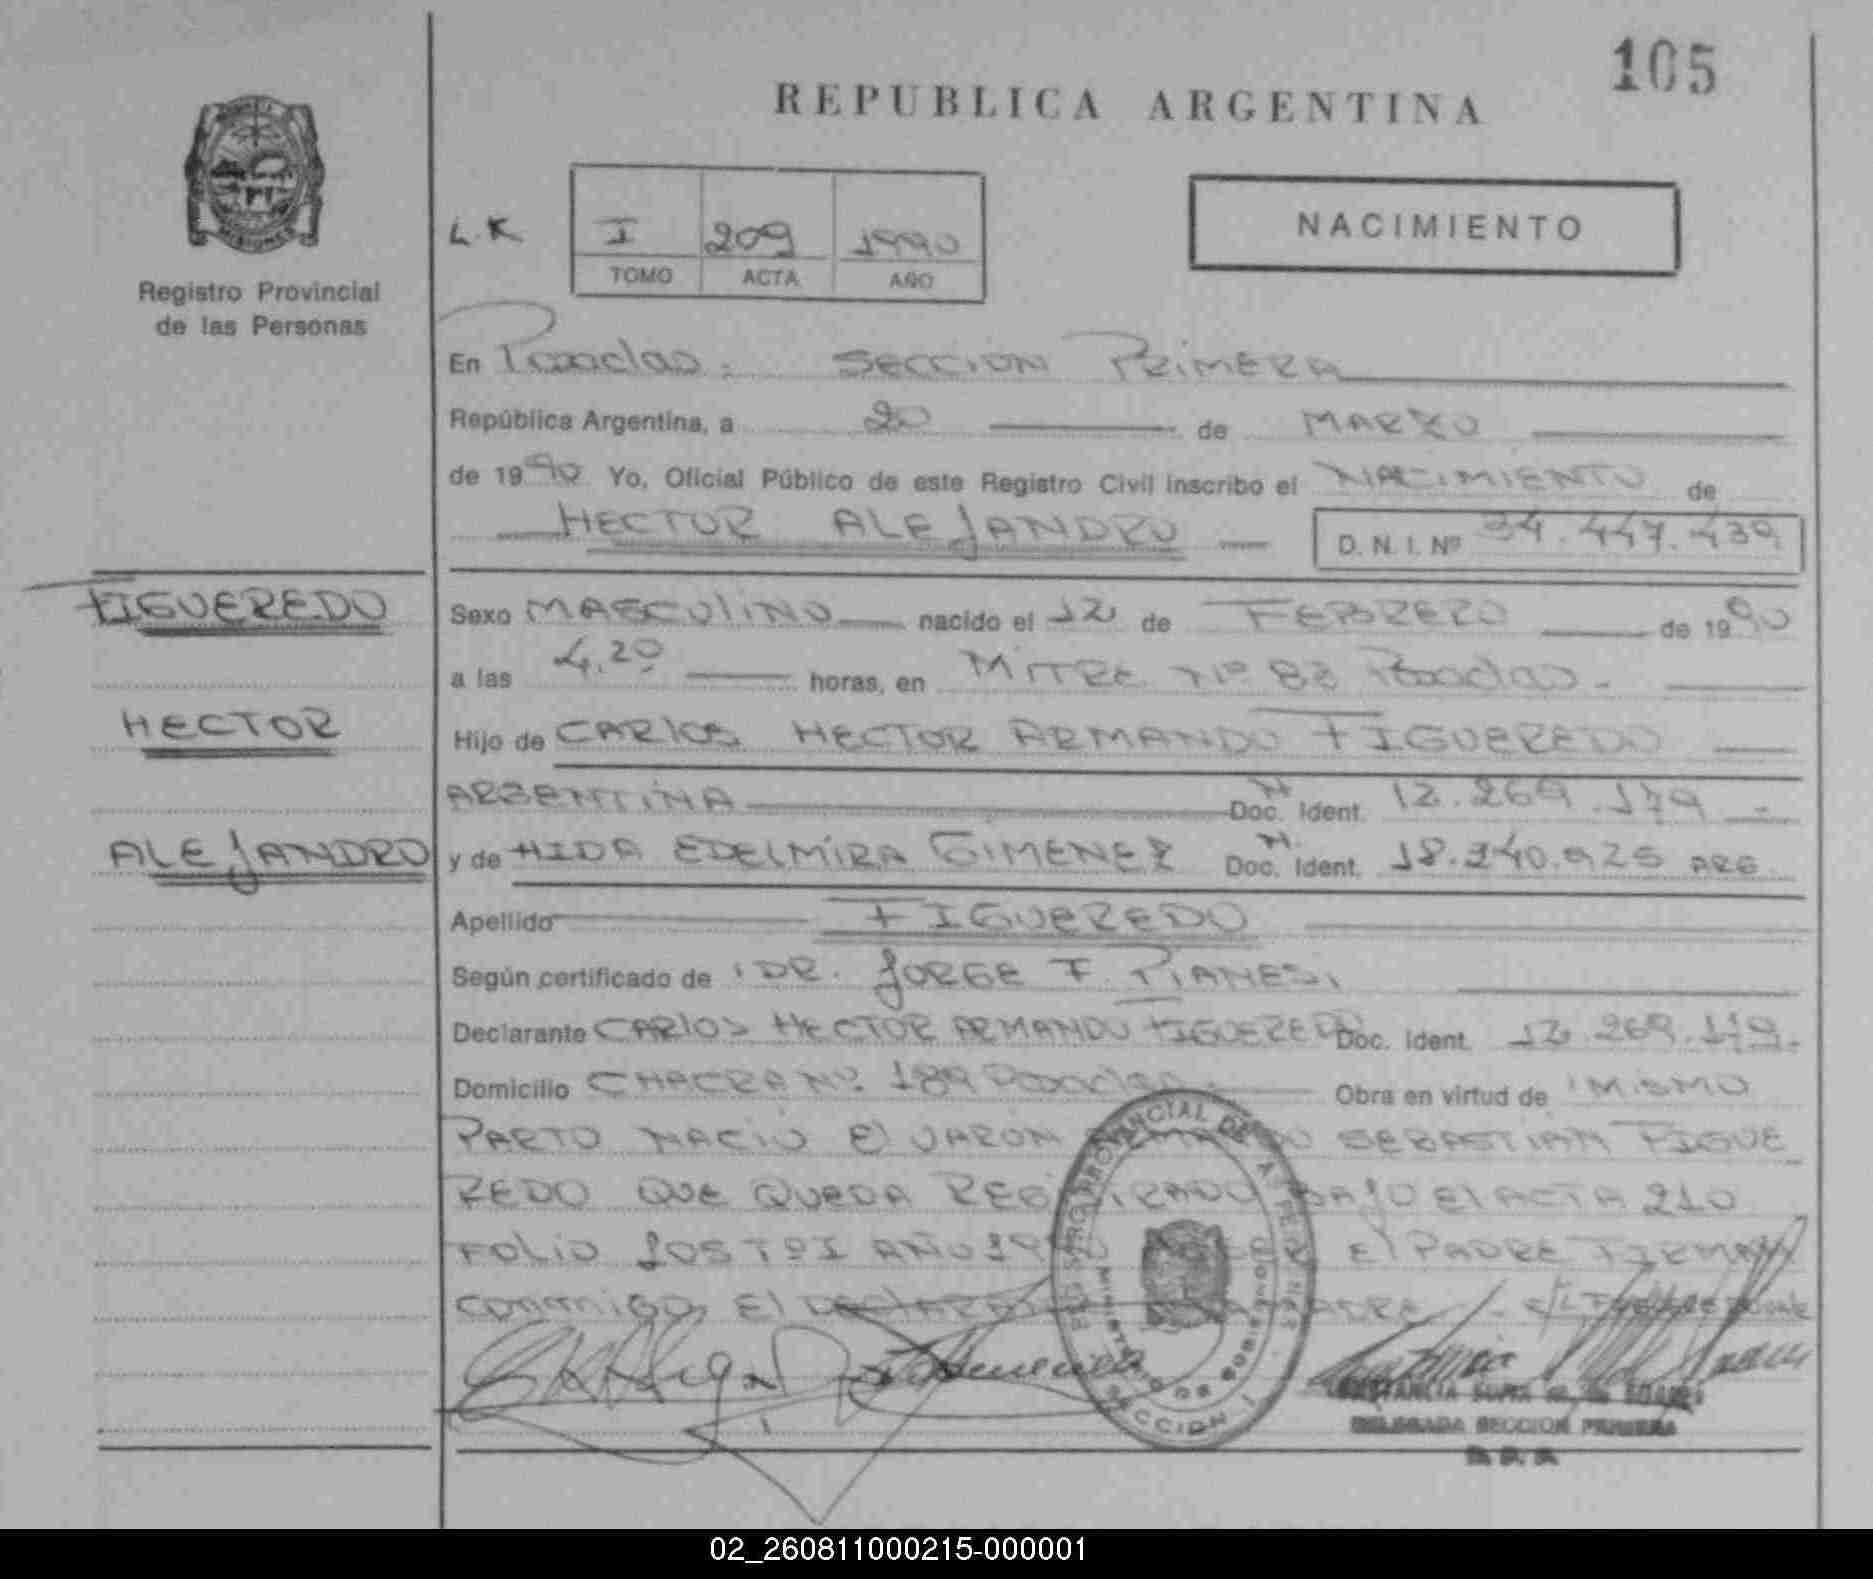 105
REPUBLICA ARGENTINA
MISIONES
Registro Provincial
de las Personas
L.K
I 209 1990
TOMO ACTA AÑO
NACIMIENTO
En Posadas. SECCION PRIMERA
República Argentina, a 20 de MARZO
de 1990 Yo, Oficial Público de este Registro Civil inscribo el NACIMIENTO de
HECTOR ALEJANDRO D. N. I. Nº 34.447.439
FIGUEREDO
HECTOR
ALEJANDRO
Sexo MASCULINO nacido el 12 de FEBRERO de 1990
a las 4,20 horas, en MITRE Nº 83 Posadas.
Hijo de CARLOS HECTOR ARMANDO FIGUEREDO
ARGENTINA Doc. Ident. 12.269.179
y de HIDA EDELMIRA GIMENEZ Doc. Ident. 18.240.925 ARG
Apellido FIGUEREDO
Según certificado de DR. JORGE F. PIANESI
Declarante CARLOS HECTOR ARMANDO FIGUEREDO Doc. Ident. 12.269.179.
Domicilio CHACRA Nº 189 Posadas. Obra en virtud de MISMO
PARTO NACIO El VARON SEBASTIAN FIGUE
REDO QUE QUEDA REGISTRADO BAJO El ACTA 210
FOLIO 105 Tº I AÑO 19 El PADRE FIRMAN
CONMIGO El MADRE
SECCION I
DELEGADA SECCION PRIMERA
02_260811000215-000001